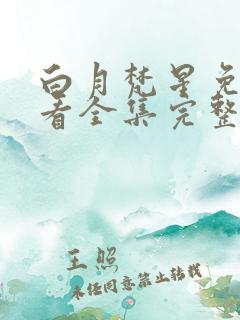 白月梵星免
看全集完整
王照
未经同意禁止转载